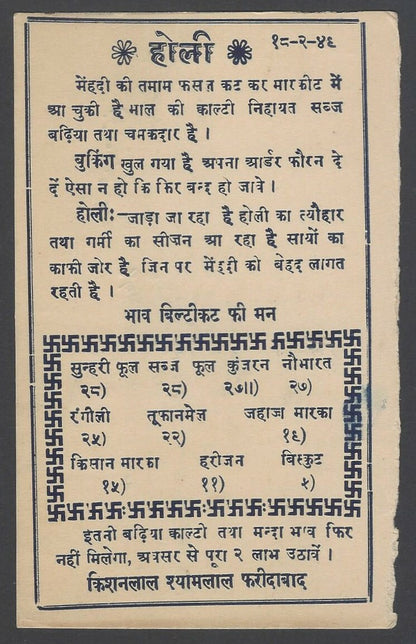 होली
१८-२-४६
मेंहदी की तमाम फसल कट कर मारकीट में
आ चुकी है माल की काल्टी निहायत सब्ज
बढ़िया तथा चमकदार है ।
बुकिंग खुल गया है अपना आर्डर फौरन दे
दें ऐसा न हो कि फिर बन्द हो जावे ।
होली:-जाड़ा जा रहा है होली का त्यौहार
तथा गर्मी का सीज़न आ रहा है सायों का
काफी जोर है जिन पर मेंहदी को बेहद लागत
रहती है ।
भाव बिल्टीकट फी मन
सुन्हरी फूल सब्ज फूल कुंजरन नौभारत
२८) २८) २७॥) २७)
रंगीली तूफानमेल जहाज मारका
२५) २२) १६)
किसान मारका हरीजन बिस्कुट
१५) ११) ५)
इतनी बढ़िया काल्टी तथा मन्दा भाव फिर
नहीं मिलेगा, अवसर से पूरा २ लाभ उठावें ।
किशनलाल श्यामलाल फरीदाबाद